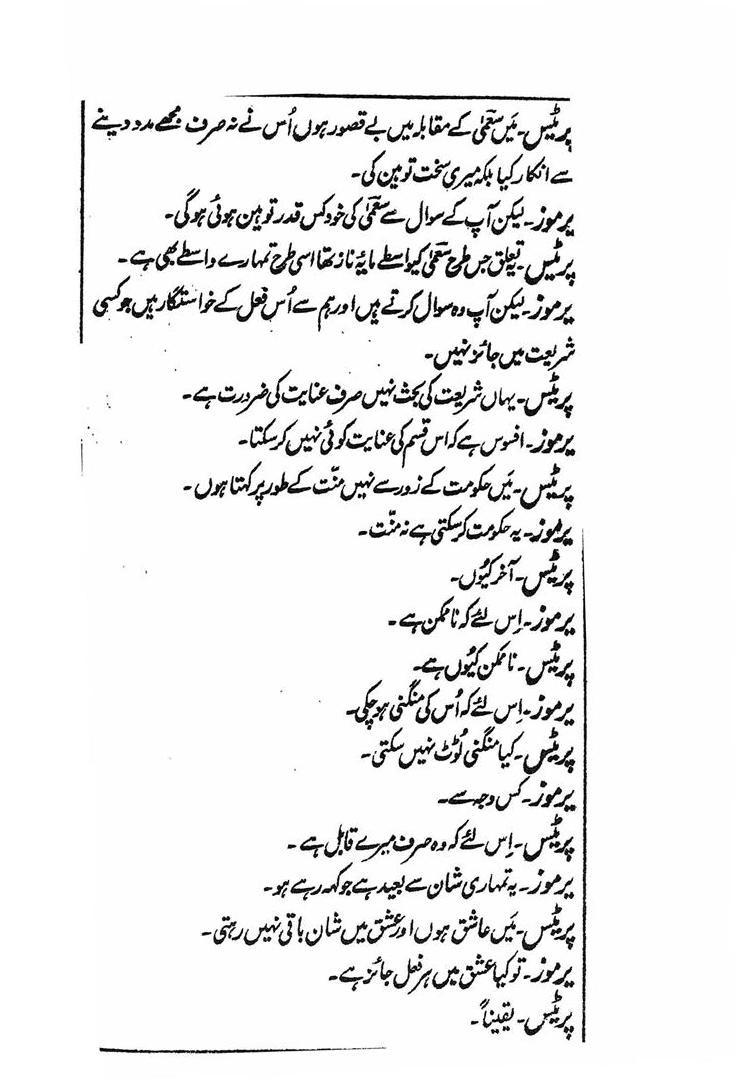 پریٹس۔ مَیں سعمّیٰ کے مقابلہ میں بے قصور ہوں اُس نے نہ صرف مجھے مدد دینے
سے انکار کیا بلکہ میری سخت توہین کی۔
پرموز۔ لیکن آپ کے سوال سے سعمّیٰ کی خود کس قدر توہین ہوئی ہوگی۔
پریٹس۔ یہ تعلق جس طرح سعمّیٰ کیواسطے مایۂ ناز تھا اسی طرح تمہارے واسطے بھی ہے۔
پرموز۔ لیکن آپ وہ سوال کرتے ہیں اور ہم سے اُس فعل کے خواستگار ہیں جو کسی
شریعت میں جائز نہیں۔
پریٹس۔ یہاں شریعت کی بحث نہیں صرف عنایت کی ضرورت ہے۔
پرموز۔ افسوس ہے کہ اس قسم کی عنایت کوئی نہیں کر سکتا۔
پریٹس۔ مَیں حکومت کے زور سے نہیں منّت کے طور پر کہتا ہوں۔
پرموز۔ یہ حکومت کر سکتی ہے نہ منّت۔
پریٹس۔ آخر کیُوں۔
پرموز۔ اِس لئے کہ ناممکن ہے۔
پریٹس۔ ناممکن کیُوں ہے۔
پرموز۔ اِس لئے کہ اُس کی منگنی ہو چکی۔
پریٹس۔ کیا منگنی ٹُوٹ نہیں سکتی۔
پرموز۔ کس وجہ سے۔
پریٹس۔ اِس لئے کہ وہ صرف میرے قابل ہے۔
پرموز۔ یہ تمہاری شان سے بعید ہے جو کہہ رہے ہو۔
پریٹس۔ مَیں عاشق ہوں اور عشق میں شان باقی نہیں رہتی۔
پرموز۔ تو کیا عشق میں ہر فعل جائز ہے۔
پریٹس۔ یقیناً۔